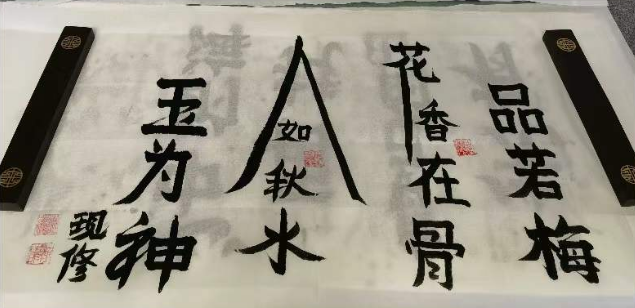 品若梅
花香在骨
人如秋水
玉为神
现修